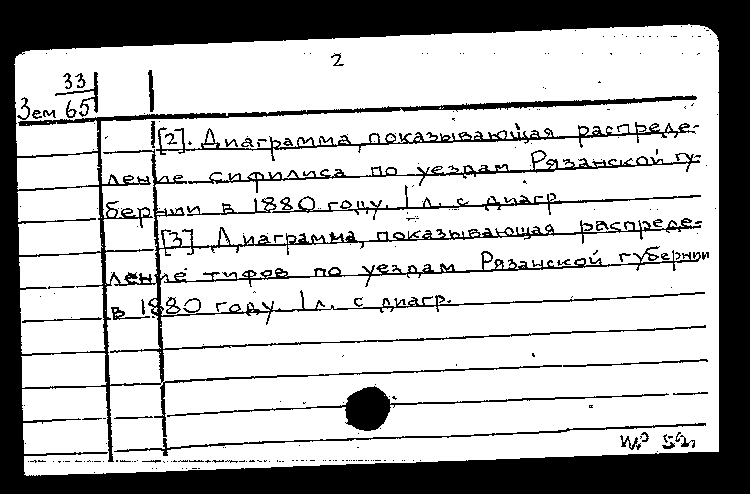 2
33
Зем 65
[2]. Диаграмма, показывающая распреде-
ление сифилиса по уездам Рязанской гу-
бернии в 1880 году. 1 л. с диагр.
[3] Диаграмма, показывающая распреде-
ление тифов по уездам Рязанской губернии
в 1880 году. 1 л. с диагр.